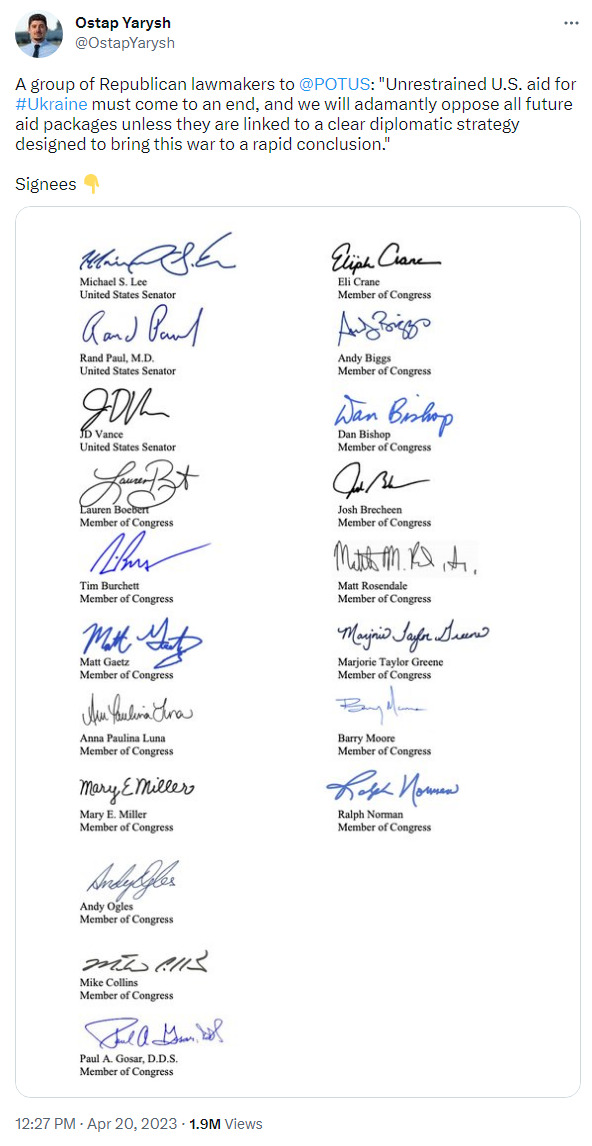 Ostap Yarysh
@OstapYarysh
A group of Republican lawmakers to @POTUS: "Unrestrained U.S. aid for
#Ukraine must come to an end, and we will adamantly oppose all future
aid packages unless they are linked to a clear diplomatic strategy
designed to bring this war to a rapid conclusion."
Signees 👇
Michael S. Lee
United States Senator
Rand Paul
Rand Paul, M.D.
United States Senator
JD Vance
United States Senator
Lauren Boebert
Member of Congress
Tim Burchett
Member of Congress
Matt Gaetz
Matt Gaetz
Member of Congress
Anna Paulina Luna
Member of Congress
Mary E Miller
Mary E. Miller
Member of Congress
Andy Ogles
Andy Ogles
Member of Congress
Mike Collins
Member of Congress
Paul A. Gosar, DDS
Paul A. Gosar, D.D.S.
Member of Congress
Elijah Crane
Eli Crane
Member of Congress
Andy Biggs
Andy Biggs
Member of Congress
Dan Bishop
Dan Bishop
Member of Congress
Josh Brecheen
Member of Congress
Matt Rosendale
Member of Congress
Marjorie Taylor Greene
Marjorie Taylor Greene
Member of Congress
Barry Moore
Member of Congress
Ralph Norman
Ralph Norman
Member of Congress
12:27 PM · Apr 20, 2023 · 1.9M Views